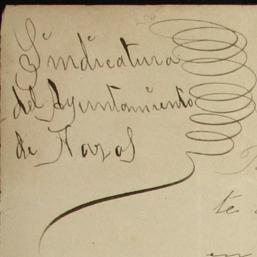 Sindicatura
del Ayuntamiento
de Nazas
te
en